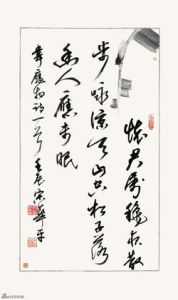 懷君屬穐夜散
步詠涼天山空松子落
幽人應未眠
韋應物詩一首壬辰宋華平